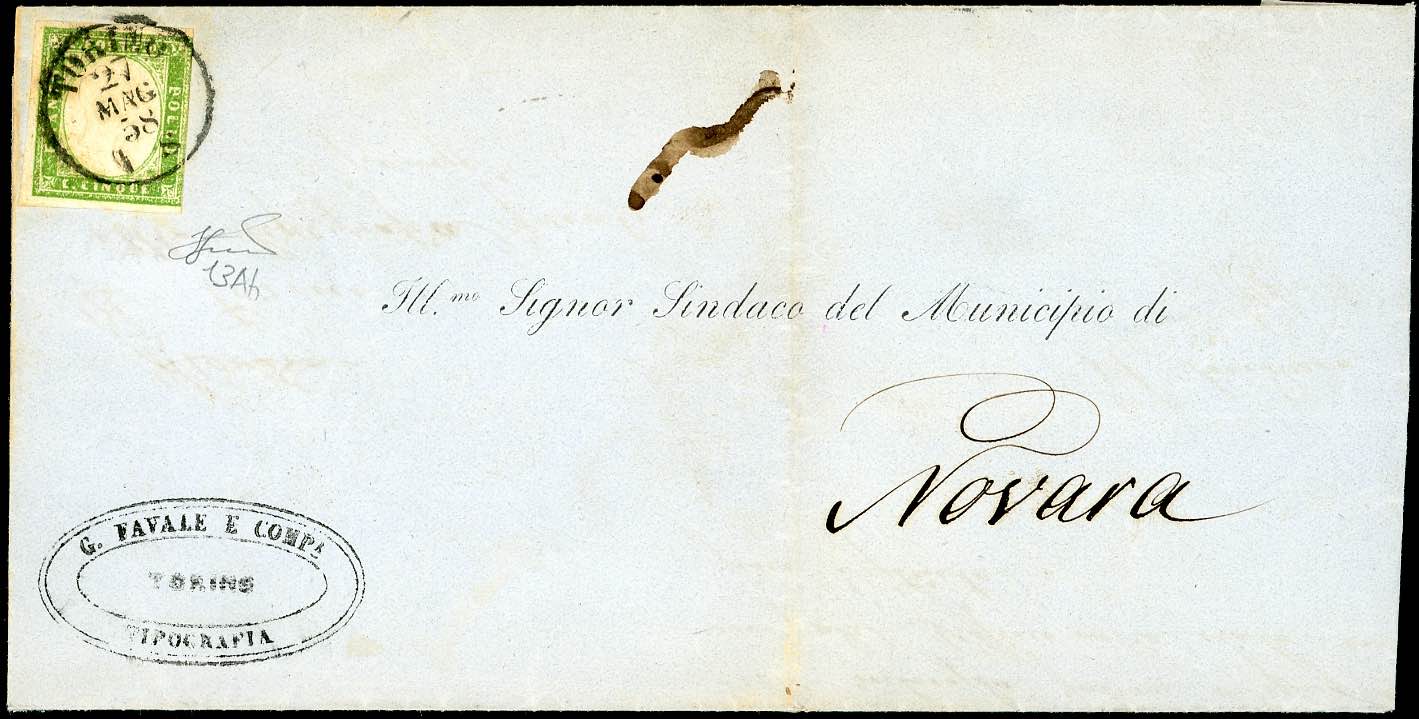 TORINO
27
MAG
58
C. CINQUE
13Ah
Ill.mo Signor Sindaco del Municipio di
Novara
G. FAVALE E COMPA
TORINO
TIPOGRAFIA